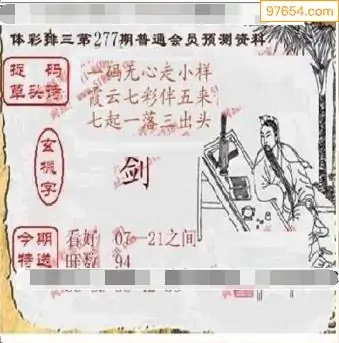 97654.com
体彩排三第277期普通会员预测资料
捉码
草头诗
一码无心走小样
霞云七彩伴五来
七起一落三出头
玄機字
剑
今期
特送
看好 07—21之间
94